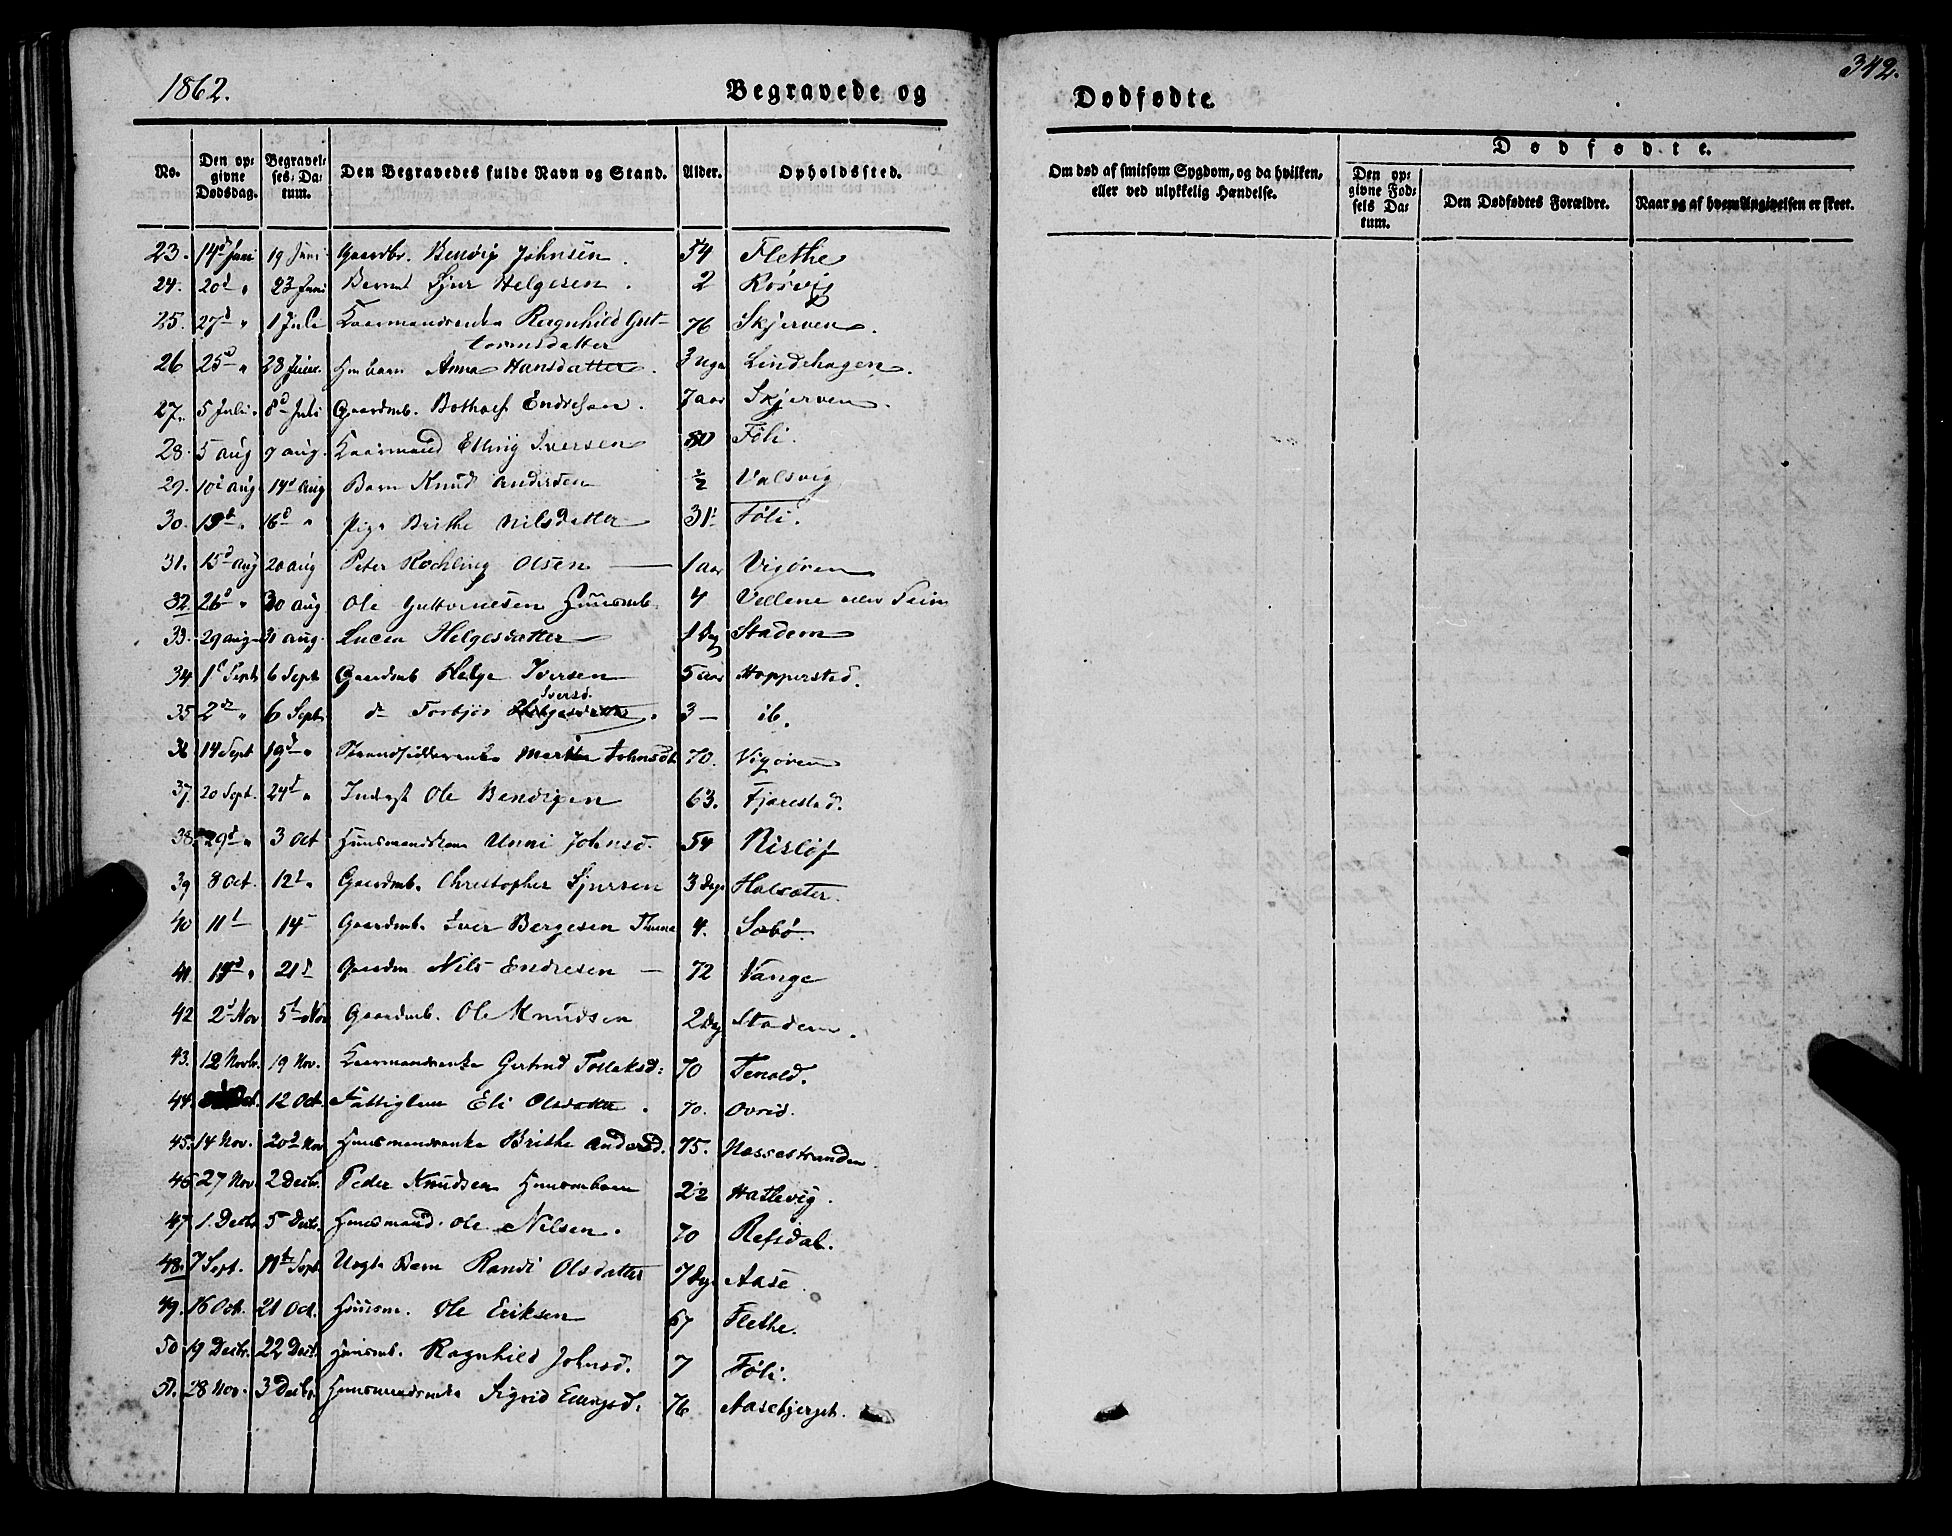 1862.
Begravede og
Dødfødte.
342.
No.
Den opgivne Dødsdag.
Begravelses-Datum.
Den Begravedes fulde Navn og Stand.
Alder.
Opholdssted.
Om død af smitsom Sygdom, og da hvilken, eller ved ulykkelig Hændelse.
Dødfødte.
Den opgivne Fødsels Datum.
Den Dødfødtes Forældre.
Naar og af hvem Angivelsen er skeet.
23. 14d Juni 19 Juni Gaardbr. Bendix Johnsen. 54 Flethe
24. 20d " 23 Juni Barnet Sjur Helgesen. 2 Rørvig
25. 27d " 1 Juli Kaarmandsenke Ragnhild Gut-
tormsdatter 76 Skjerven.
26 25d " 28 Juni Hmbarn Anna Hansdatter. 3 uger Lindehagen.
27. 5 Juli. 8d Juli Gaardmb. Botholf Endresen. 7 aar Skjerven.
28. 5 aug 9 aug. Kaarmand Elling Iversen 80 Føli.
29. 10d aug 14d aug Barn Knud Andersen ½ Valsvig
30. 13d " 16d " Pige Brithe Nilsdatter 31 Føli.
31. 15d aug 20 aug Peter Kochling Olsen 1 aar Vigøren
32 26d " 30 aug Ole Guttormsen Huusmb. 4 Vellene
33. 29 aug 31 aug. Lucia Helgesdatter 1 Dag Stadem
34 1d Sept 6 Sept Gaardmb Helge Iversen 5 aar Hopperstad.
35 2den " 6 Sept do Torbjør Iversd. 3 — ib.
36 14 Sept 19d " Strandsidderenke Martha Johnsdt 70. Vigøren
37. 20 Sept. 24d " Inderst Ole Bendixen 63. Fjærestad.
38. 29d " 3 Oct Huusmandskone Unni Johnsd. 54 Risløf
39 8 Oct. 12d " Gaardmb. Christopher Sjursen 3 Dage Halsæter.
40 11d 14 — Gaardmb. Iver Bergesen 4. Sæbø.
41 17d " 21d Gaardm Nils Endresen — 72 Vange
42 2d Nov 5d Nov Gaardmb. Ole Knudsen 2 Dag Stadem.
43. 12 Novbr. 19 Nov. Kaarmandsenke Gertrud Tollaksd. 70 Tenold.
44. Oct. 12 Oct. Fattiglem Eli Olsdatter. 70. Ovrid.
45. 14 Nov. 20d Nov Huusmandsenke Brithe Andersd. 75. Næssestranden.
46 27 Nov. 2 Decbr. Peder Knudsen Huusmbarn 2½ Hatlevig.
47. 1. Decbr 5 Decbr. Huusmand. Ole Nilsen. 70 Refsdal.
48. 7 Sept. 11d Sept Uægte Barn Randi Olsdatter 7 Dge Aase.
49. 16 Oct. 21 Oct. Huusm. Ole Eriksen 67 Flethe.
50 19 Decbr. 22 Decb. Huusmb. Ragnhild Johnsd. 7 Føli.
51. 28 Nov. 3 Decbr. Huusmandsenke Sigrid Ellingsd. 76 Aasebjerget.